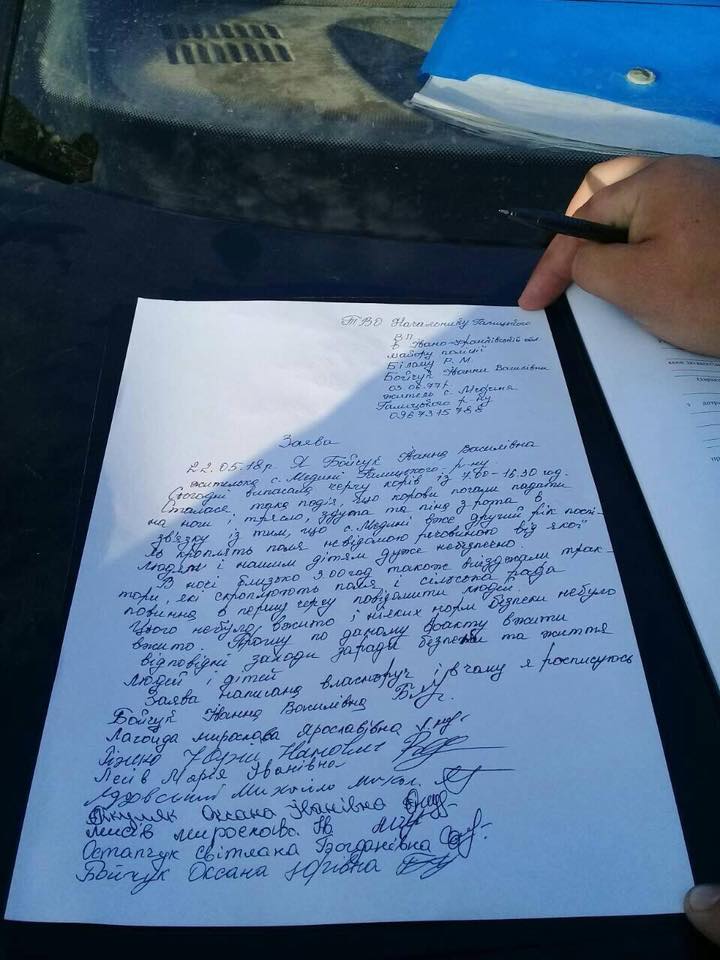 ТВО Начальнику Галицького
ВП
в Івано-Франківській обл
майору поліції
Білашу Р. М.
Бойчук Жанни Василівни
03.06.77р.
жителька с. Мединя
Галицького р-ну
0967315788
Заява
22.05.18р. Я Бойчук Жанна Василівна
жителька с. Медині Галицького р-ну.
Сьогодні випасала чергу корів із 7.00-16.30 год.
Сталася така подія, що корови почали падати
на ноги і трясло, здута та піна з рота в
зв'язку із тим, що с. Медині вже другий рік
як кроплять поля невідомою речовиною від якої
людям і нашим дітям дуже небезпечно.
В ночі близько 3.00 год також виїзджали трак-
тори, які скроплюють поля і сільська рада
повинна в першу чергу повідомити людей.
Цього небуло вжито і ніяких норм безпеки небуло
вжито. Прошу по даному факту вжити
відповідні заходи заради безпеки та життя
людей і дітей
Заява написана власноруч і в чому я росписуюсь
Бойчук Жанна Василівна
Лагойда мирослава Ярославівна
Лесів Марія Іванівна
Михайло
Оксана іванівна
Остапчук світлана Богданівна
Бойчук Оксана Юрівна